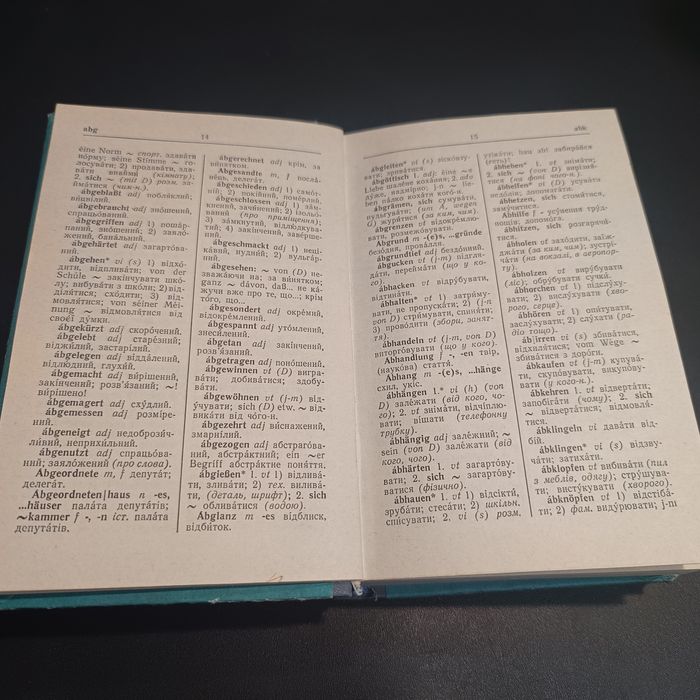 abg
14
éine Norm ~ спорт. здавáти
нóрму; séine Stimme ~ го-
лосувáти; 2) продавáти, здá-
вáти внаймú (кімнáту);
2. sich ~ (mit D) розм. зай-
мáтися (чим-н.).
ábgeblaßt adj поблíклий,
вицвíлий.
ábgebraucht adj знóшений,
спрацьóваний.
ábgegriffen adj 1) пошáр-
паний, знóшений; 2) заялó-
жений, банáльний.
ábgehärtet adj загартó-
ваний.
ábgehen* vi (s) 1) відхó-
дити, відпливáти; von der
Schúle ~ закíнчувати шкó-
лу; вибувáти з шкóли; 2) від-
ділятися; сходити; 3) від-
мовлятися; von séiner Méi-
nung ~ відмовлятися від
своєї дýмки.
ábgekürzt adj скорóчений.
ábgelebt adj старéзний;
віджúлий, застарíлий.
ábgelegen adj віддáлений,
відлюдний, глухúй.
ábgemacht adj вúрішений,
закíнчений, розв'язаний; ~!
вúрішено!
ábgemagert adj схýдлий.
ábgemessen adj розмíре-
ний.
ábgeneigt adj недоброзúч-
лúвий, неприхúльний.
ábgenutzt adj спрацьó-
ваний; заялóжений (про слова).
Ábgeordnete m, f депутáт;
делегáт.
Ábgeordneten|haus n -es,
...häuser палáта депутáтів;
~kammer f -, -n іст. палáта
депутáтів.
ábgerechnet adj крім, за
вúнятком.
Ábgesandte m, f послá-
нець, делегáт.
ábgeschieden adj 1) самóт-
ній; 2) покíйний, помéрлий.
ábgeschlossen adj 1) зáм-
кнений, зачúнений; 2) ізольó-
ваний (про приміщення);
3) зáмкнутий, відлюдкувá-
тий; 4) закíнчений, завéрше-
ний.
ábgeschmackt adj 1) нецi-
кáвий, нуднúй; 2) вульгáр-
ний.
ábgesehen: ~ von (D) не-
зважáючи на; за вúнятком;
ganz ~ davon, daß... не кá-
жучи вже про те, що...; крім
тóго, що...
ábgesondert adj окрéмий,
відокрéмлений.
ábgespannt adj утóмлений,
знесúлений.
ábgetan adj закíнчений,
розв'язаний.
ábgetragen adj понóшений.
ábgewinnen vt (D) вигра-
вáти; добивáтися; здобу-
вáти.
ábgewöhnen vt (j-m) від-
ýчувати; sich (D) etw. ~ відви-
кáти від чóго-н.
ábgezehrt adj вúснажений,
змарнíлий.
ábgezogen adj абстрагó-
ваний, абстрáктний; ein ~er
Begríff абстрáктне поняття.
ábgießen* 1. vt 1) відлuвá-
ти, вливáти; 2) тех. виливá-
ти, (детáль, шрифт); 2. sich
~ обливáтися (водóю).
Ábglanz m -es вíдблиск,
вíдбиток.
15
abk
ábgleiten* vi (s) зісковзу-
вати;
ábgöttisch 1. adj: éine ~e
Liebe шалéне кохáння; 2. adv
дýже, надмíрно; j-n ~ lie-
ben пáлко кохáти когó-н.
ábgrämen, sich сумувáти,
журúтися (за ким, чим).
ábgrenzen vt відокрéмлю-
вати, розмежóвувати.
Ábgrund m -(e)s, ...gründe
бéзодня, провáлля.
ábgrundtief adj бездóнний.
ábgucken vt (j-m) підгля-
дáти, переймáти (що у ко-
гó).
ábhacken vt відрýбувати,
відтинáти.
ábhalten* vt 1) затрúму-
вати, не пропускáти; 2) (j-n
von D) стрúмувати, спиняти;
3) провóдити (збóри, заняття).
ábhandeln vt (j-m, von D)
виторгóвувати (що у кого).
Ábhandlung f -, -en твір,
(наукóва) стаття.
Ábhang m -(e)s, ...hänge
схил, укíс.
ábhängen 1.* vi (h) (von
D) залéжати (від кого, чо-
гó); 2. vt знімáти, відчíплю-
вати; вішати (телефóнну
трýбку).
ábhängig adj залéжний; ~
sein (von D) залéжати (від
кого, чого).
ábhärten 1. vt загартóву-
вати; 2. sich ~ загартóву-
ватися (фізúчно).
ábhauen* 1. vt 1) відсікáти,
зрубáти; стесáти; 2) шкільн.
спúсувати; 2. vi (s) розм.
утікáти; hau ab! забирáйся
(геть)!
ábheben* 1. vt знімáти;
2. sich ~ (von D) вирíз-
нятися (на фоні чого-н.).
ábhelfen* vi (D) усувáти
недóліки, допомагáти.
ábhetzen, sich стомúтися,
замýчитися.
Ábhilfe f - усýнення трýд-
нощів; допомóга.
ábhitzen, sich розгарячú-
тися.
ábholen vt захóдити, заїж-
джáти (за ким, чим); зустрі-
чáти (на вокзáлі, в аеропор-
ту).
ábholzen vt вирýбувати
(ліс), обрýбувати сучкú.
ábhorchen vt 1) підслýху-
вати; 2) вислýхувати (хвó-
рого, серце).
ábhören vt 1) опúтувати,
заслýхувати; 2) слýхати (рá-
діо тощо).
áb|irren vi (s) збивáтися,
відхилятися; vom Wége ~
збивáтися з дорóги.
ábkaufen vt (j-m) купувá-
ти, скупóвувати, викупóву-
вати (у когó-н.).
ábkehren 1. vt відвертáти;
запобігáти (чому); 2. sich
~ відвертáтися; відмовля-
тися.
ábklingeln vt давáти від-
бíй.
ábklingen* vi (s) відзву-
чáти; затихáти.
ábklopfen vt вибивáти (пил
з мéблів, óдягу); стрýшу-
вати; вистýкувати (хвóрого).
ábknöpfen vt 1) відстібá-
ти; 2) фам. видýрювати; j-m